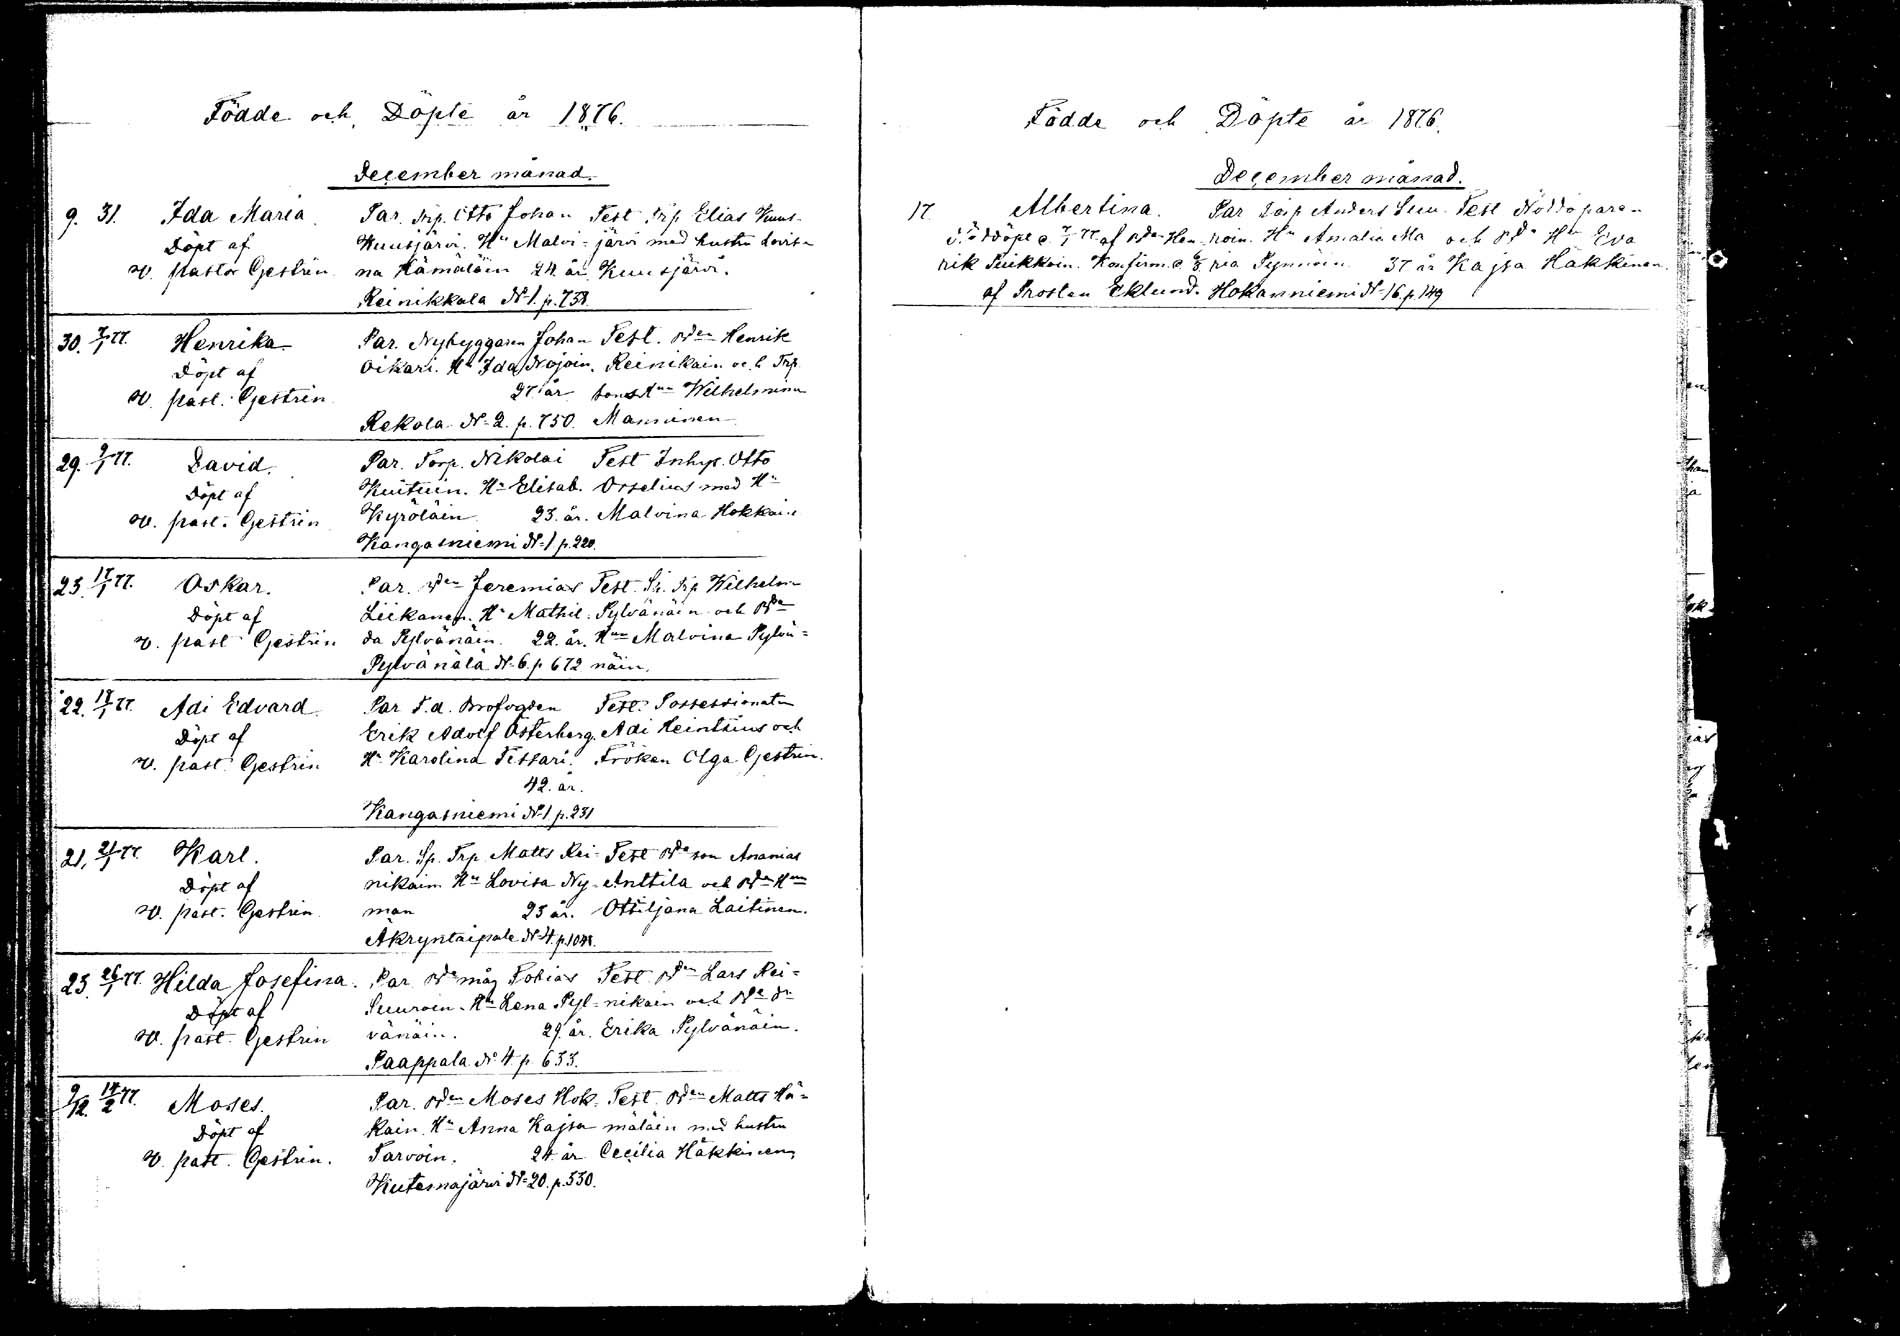 Födde och Döpte år 1876.
December månad.
9. 31. Ida Maria. Par. Trp. Otto Johan Test. Trp. Elias Kuus-
Döpt af Kuusjärvi. Hu Malvi- järvi med hustru Lovisa
v. pastor Gestrin na Hämäläin 24 år Kuusjärvi.
Reinikkala No 1. p. 738.
30. 7/1 77. Henrika Par. Nybyggaren Johan Test. Bden Henrik
Döpt af Oikari. Hu Ida Nojoin. Reinikain och Trp.
v. past. Gestrin 27 år sons Hun Wilhelmina
Rekola No 2. p. 750. Manninen
29. 9/1 77. David. Par. Torp. Nikolai Test Inhys. Otto
Döpt af Kuituin. Hu Elisab. Orselius med Hu
v. past. Gestrin Kyröläin 23. år. Malvina Hokkain
Kangasniemi No 1 p. 220.
23. 17/1 77. Oskar. Par. Bden Jeremias Test. Sp. Trp Wilhelm
Döpt af Liikanen. Hu Mathil- Pylvänäin och Bde
v. past Gestrin da Pylvänäin. 22. år. Hun Malvina Pylvä=
Pylvänälä No 6. p 672 näin.
22. 18/1 77. Adi Edvard Par T.d. Brofogden Test. Possessionaten
Döpt af Erik Adolf Österberg. Adi Heintzius och
v. past. Gestrin Hu Karolina Tissari. Fröken Olga Gestrin.
42. år.
Kangasniemi No 1 p. 231
21. 21/1 77. Karl. Par. Sp. Trp. Matts Rei- Test Bde son Ananias
Döpt af nikain Hu Lovisa Ny- Anttila och Bde Hun
v. past. Gestrin man 23 år. Ottiljana Laitinen.
Äkryntaipale No 4. p. 1041.
23. 26/1 77. Hilda Josefina. Par Bde måg Tobias Test. Bden Lars Rei=
Döpt af Suuroin. Hu Lena Pyl= nikain och Bde dr
v. past. Gestrin vänäin. 29 år. Erika Pylvänäin.
Paappala No 4 p 633.
9/12. 14/2 77. Moses. Par. Bden Moses Hok- Test. Bden Matts Hä=
Döpt af kain. Hu Anna Kajsa mäläin med hustru
v. past. Gestrin. Tarvoin. 24 år Cecilia Häkkinen
Kutemajärvi No 20. p. 530.
Födde och Döpte år 1876.
December månad.
17. Albertina. Par Torp Anders Suu- Test Nöddöpare-
Nöddöpt e. 7/1 77 af Bden Hen- noin. Hu Amalia Ma och Bde Hun Eva
rik Puikkoin. Konfirm. e. ria Pynnöin 37 år Kajsa Häkkinen.
af Prosten Eklund. Hokanniemi No 16 p. 149